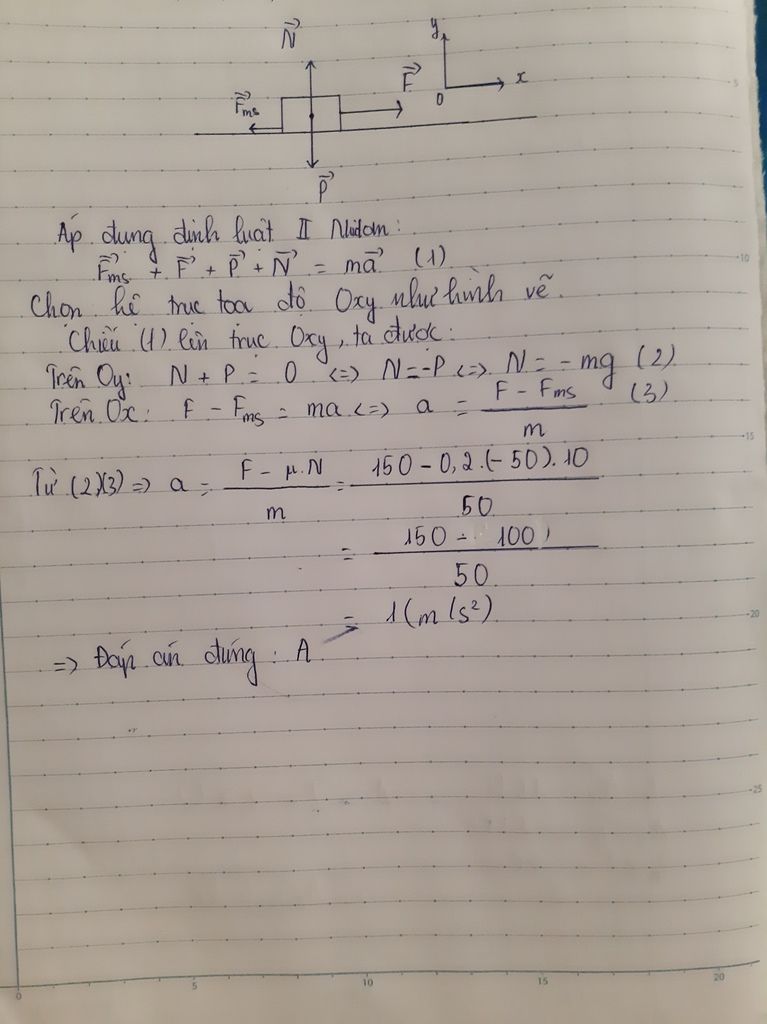 N⃗
y
F⃗ms
F⃗
x
0
P⃗
Áp dụng định luật II Niutơn:
F⃗ms + F⃗ + P⃗ + N⃗ = ma⃗ (1)
Chọn hệ trục toạ độ Oxy như hình vẽ.
Chiếu (1) lên trục Oxy, ta được:
Trên Oy: N + P = 0 <=> N=-P <=> N = - mg (2)
Trên Ox: F - Fms = ma <=> a = (F - Fms)/m (3)
Từ (2)(3) => a = (F - μ.N)/m = (150 - 0,2.(-50).10)/50
= (150 - 100)/50
= 1 (m/s²)
=> Đáp án đúng: A